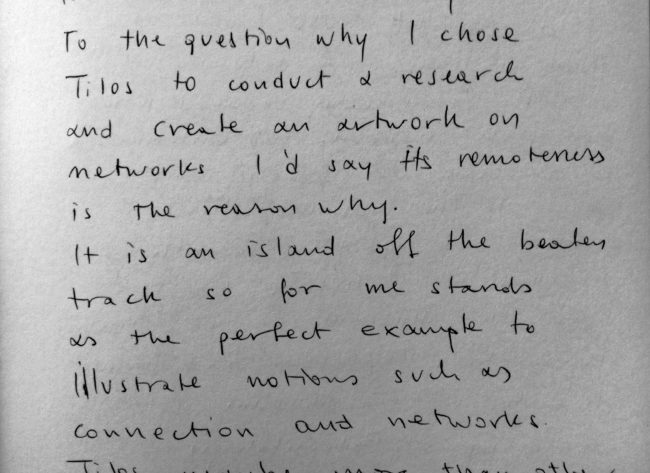 To the question why I chose
Tilos to conduct a research
and create an artwork on
networks I'd say its remoteness
is the reason why.
It is an island off the beaten
track so for me stands
as the perfect example to
illustrate notions such as
connection and networks.
Tilos more than